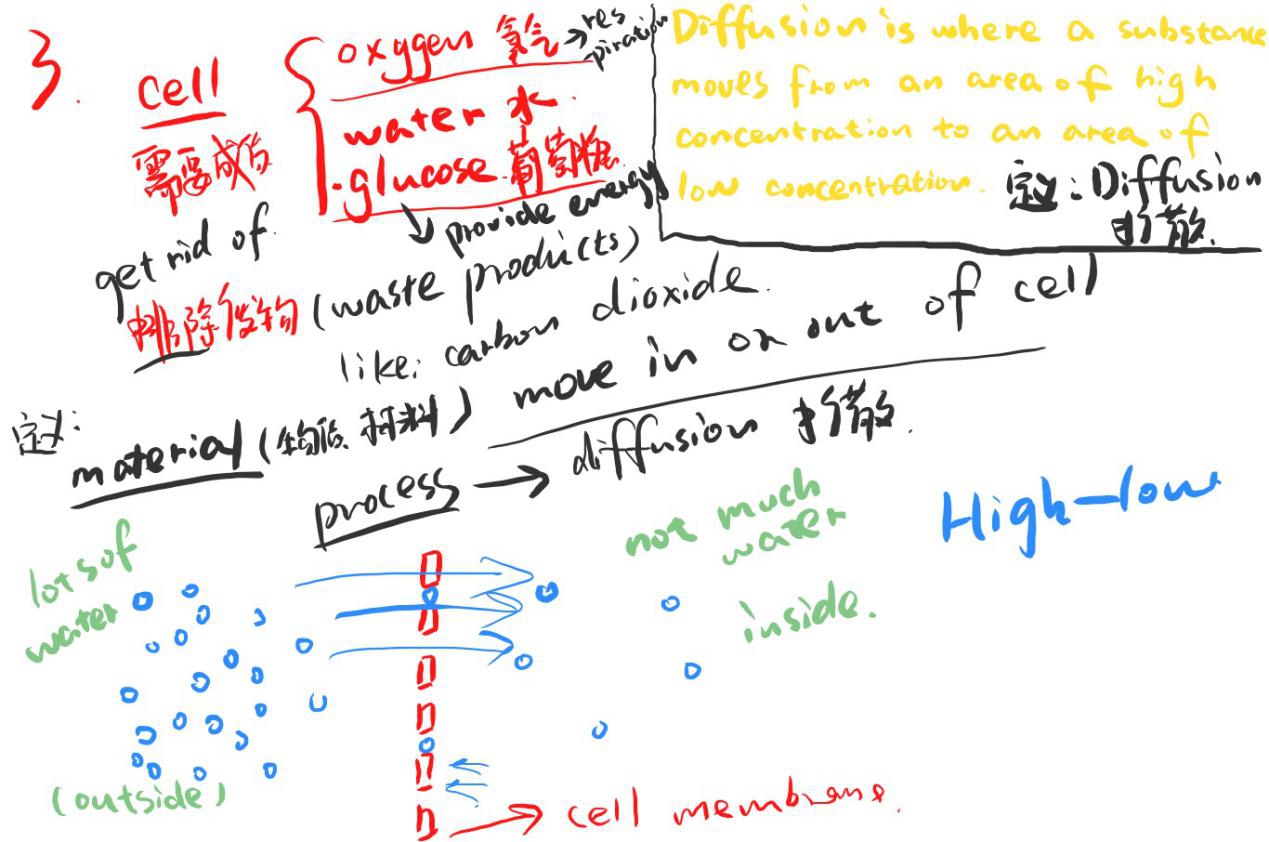 3.
cell
需要成份
oxygen 氧气 → respiration
water 水.
.glucose 葡萄糖
provide energy
get rid of
排除废物 (waste products)
like: carbon dioxide.
Diffusion is where a substance
moves from an area of high
concentration to an area of
low concentration.
定义: Diffusion
扩散.
定义:
material (物质、材料) move in or out of cell
process → diffusion 扩散.
lots of
water
not much
water
inside.
High-low
(outside)
cell membrane.